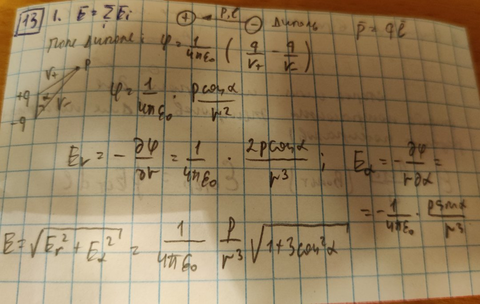 13 1. E = ΣEᵢ + p, l - диполь p̄ = ql̄
Поле диполя: φ = 1/4πε₀ (q/r₊ - q/r₋)
r₊ P
+q α r₋ φ = 1/4πε₀ · pcosα/r²
-q
Eᵣ = - ∂φ/∂r = 1/4πε₀ · 2pcosα/r³ ; E_α = - ∂φ/r∂α =
= - 1/4πε₀ · psinα/r³
E = √(Eᵣ² + E_α²) = 1/4πε₀ p/r³ √(1+3cos²α)